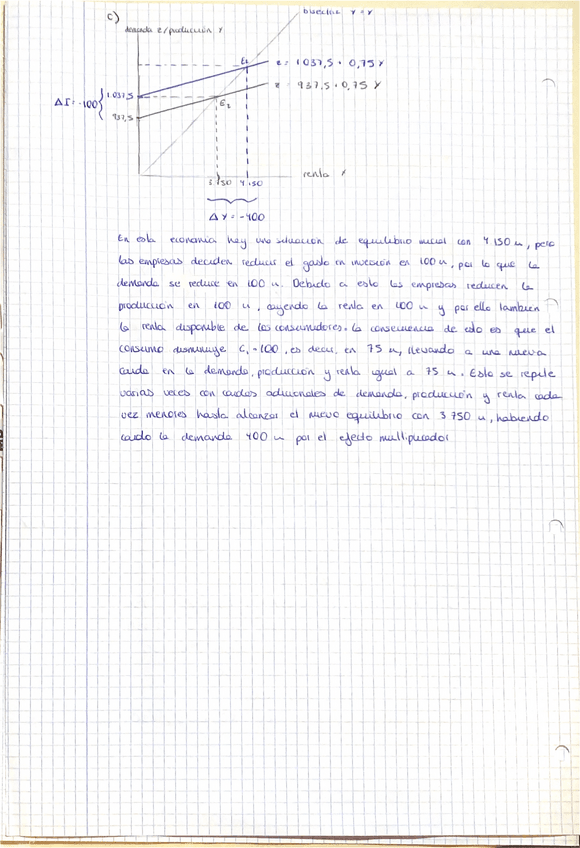 c)
bisectriz Y = Y
demanda z/producción Y
E₁
z = 1037,5 + 0,75 Y
1.037,5
z = 937,5 + 0,75 Y
ΔI = -100
E₂
937,5
renta Y
3 750 4 150
ΔY = -400
En esta economía hay una situación de equilibrio inicial con 4 150 u, pero
las empresas deciden reducir el gasto en inversión en 100 u, por lo que la
demanda se reduce en 100 u. Debido a esto las empresas reducen la
producción en 100 u, cayendo la renta en 100 u y por ello también
la renta disponible de los consumidores. La consecuencia de esto es que el
consumo disminuye c₁·-100, es decir, en 75 u, llevando a una nueva
caída en la demanda, producción y renta igual a 75 u. Esto se repite
varias veces con caídas adicionales de demanda, producción y renta cada
vez menores hasta alcanzar el nuevo equilibrio con 3 750 u, habiendo
caído la demanda 400 u por el efecto multiplicador